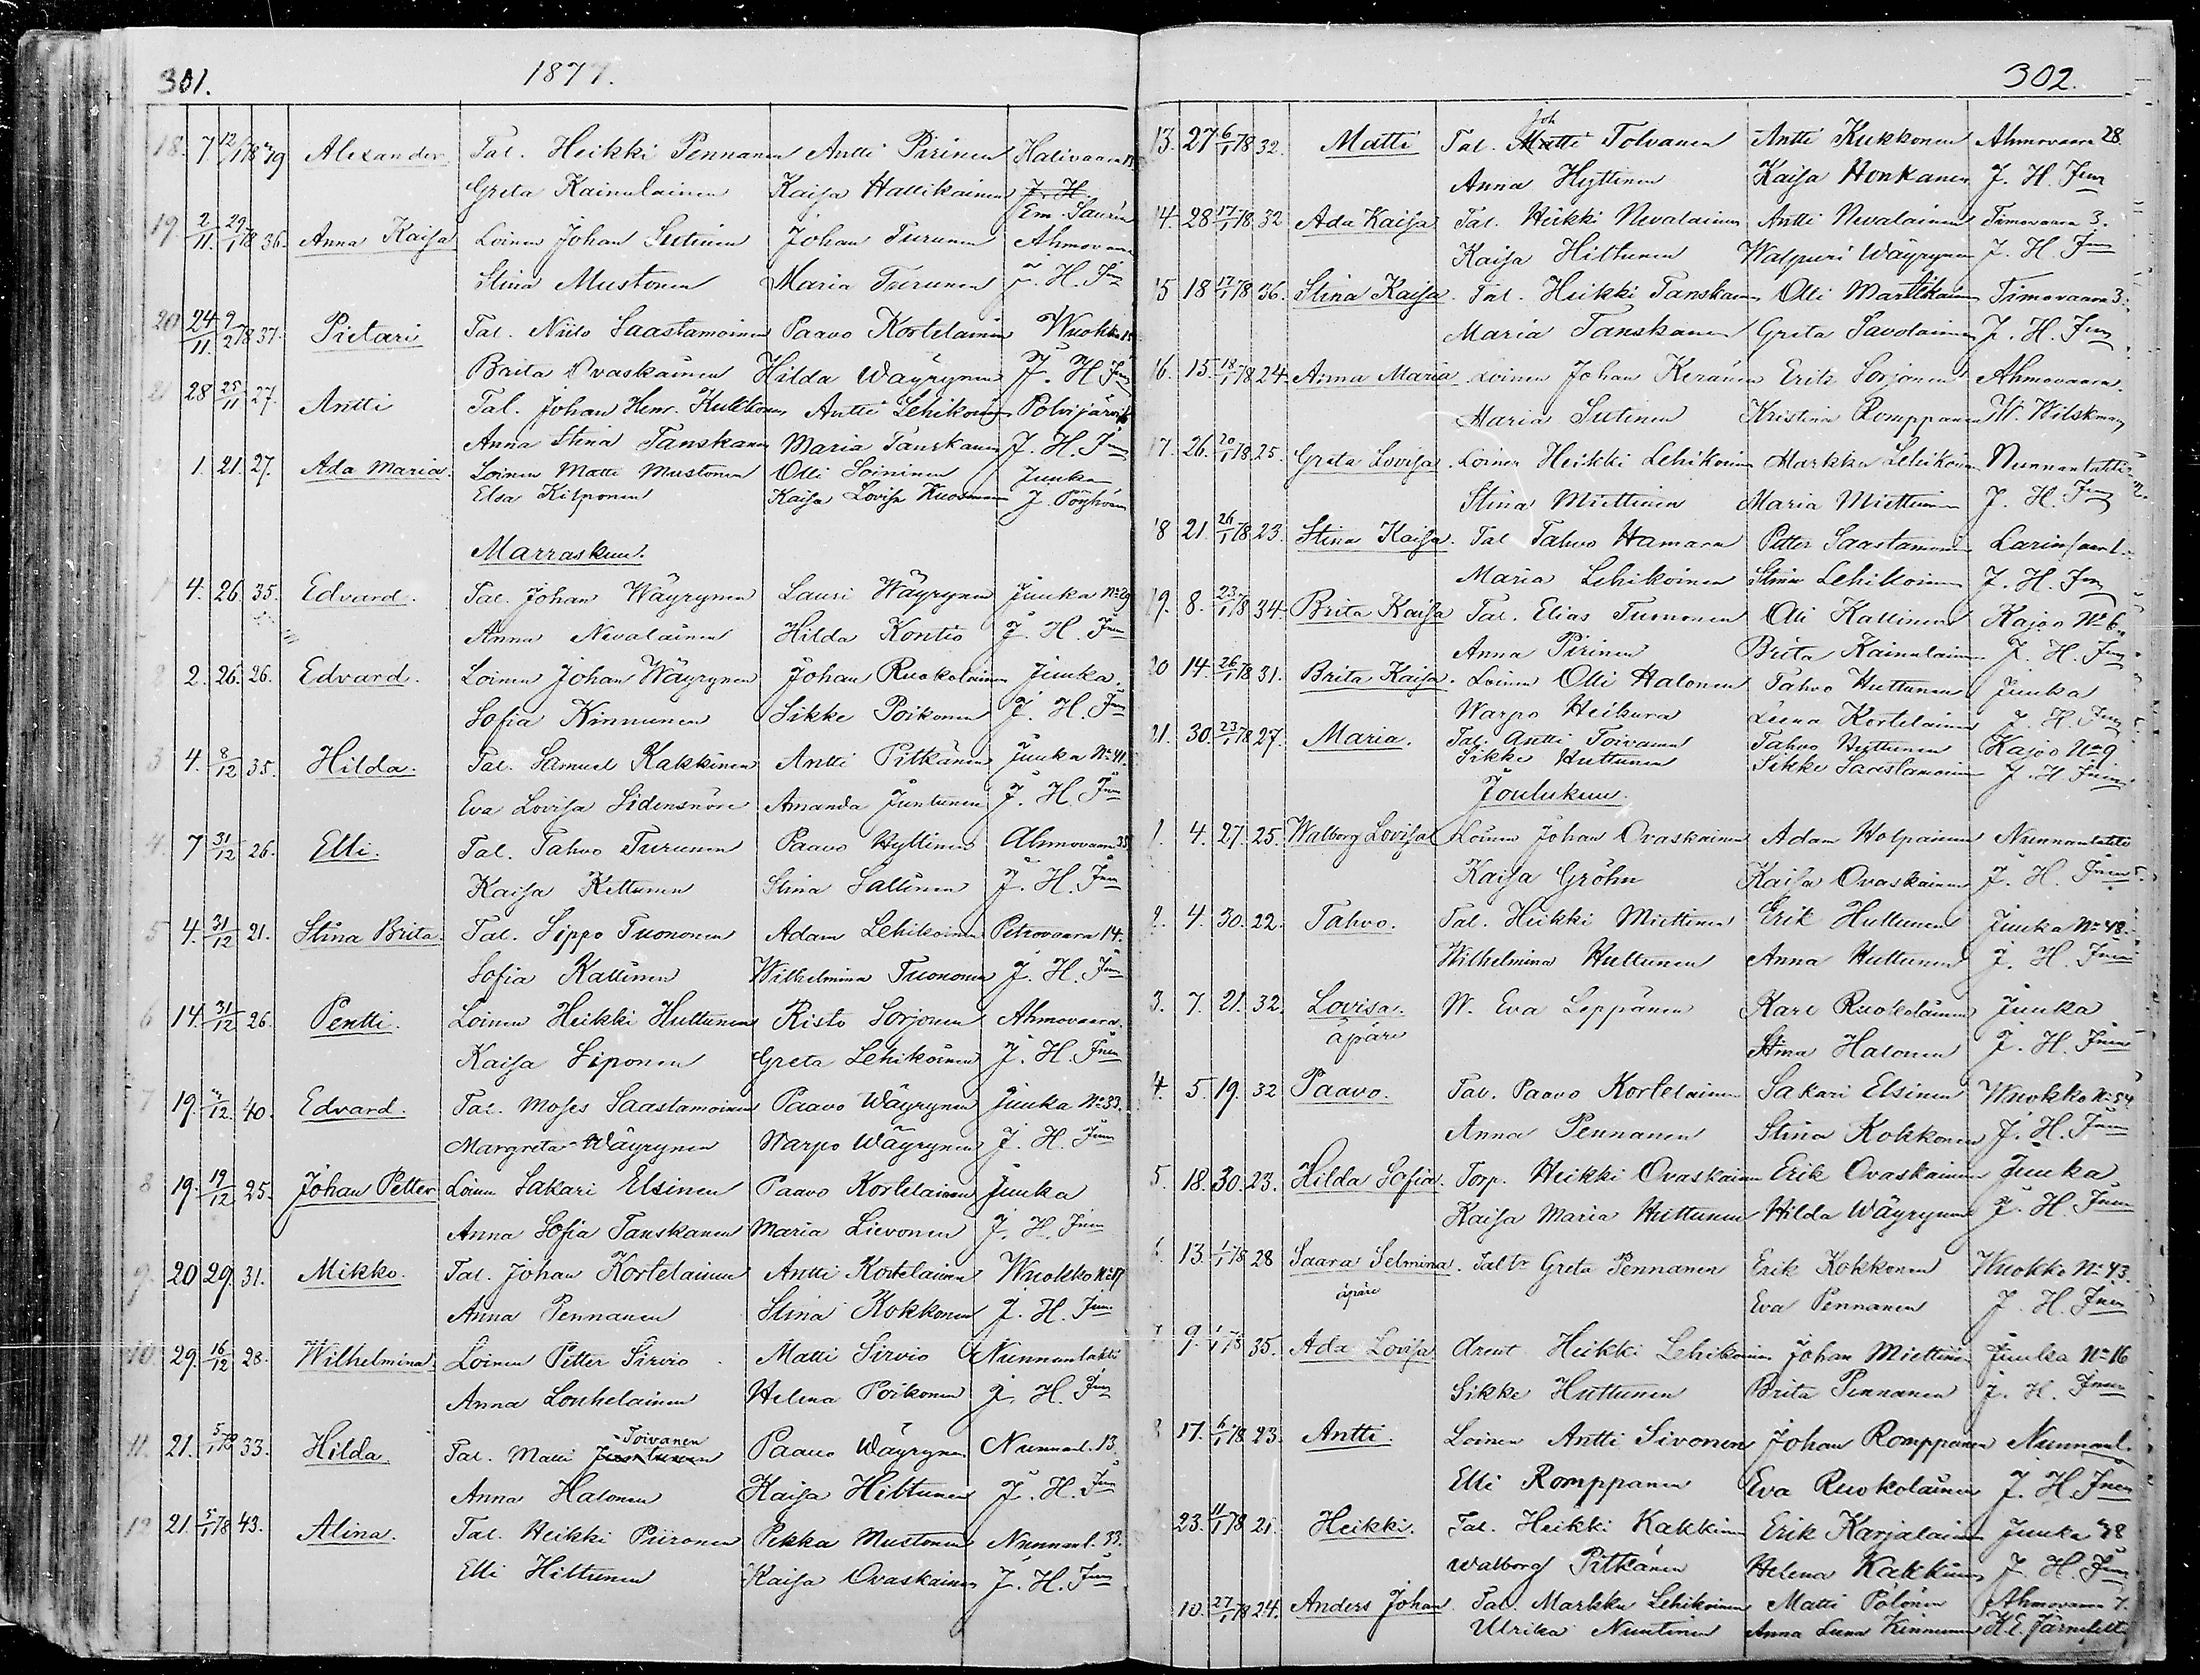 301. 1877.
18. 7 12/1 78 29 Alexander Tal. Heikki Pennanen Antti Pirinen Halivaara
Greta Kainulainen Kaisa Hallikainen J. H.
Em. Saurén
19. 2/11. 29/1 78 36. Anna Kaisa Loinen Johan Sutinen Johan Turunen Ahmovaara
Stina Mustonen Maria Turunen J. H. Jun
20 24/11. 9/2 78 37. Pietari Tal. Niilo Saastamoinen Paavo Kortelainen Wuokko
Brita Ovaskainen Hilda Wäyrynen J. H. Jun
21 28 25/11 27. Antti Tal. Johan Henr. Kukkonen Antti Lehikoinen Polvijärvi
Anna Stina Tanskanen Maria Tanskanen J. H. Jun
1. 21. 27. Ada Maria. Loinen Matti Mustonen Olli Soininen Juuka
Elsa Kilponen Kaisa Lovisa Kuosmanen J. Pöyhönen
Marraskuu.
1 4. 26. 35. Edvard. Tal. Johan Wäyrynen Lauri Wäyrynen Juuka No 29
Anna Nevalainen Hilda Kontio J. H. Jun
2 2. 26. 26. Edvard. Loinen Johan Wäyrynen Johan Ruokolainen Juuka.
Sofia Kinnunen Sikke Poikonen J. H. Jun
3 4. 8/12 35. Hilda. Tal. Samuel Kakkinen Antti Pitkänen Juuka No 41.
Eva Lovisa Sidensnöre Amanda Juntunen J. H. Jun
4. 7 31/12 26. Elli. Tal. Tahvo Turunen Paavo Hyttinen Ahmovaara 35
Kaisa Kettunen Stina Sallinen J. H. Jun
5 4. 31/12 21. Stina Brita. Tal. Sippo Tuononen Adam Lehikoinen Petrovaara 14.
Sofia Kallinen Wilhelmina Tuononen J. H. Jun
6 14. 31/12 26. Pentti. Loinen Heikki Huttunen Risto Sorjonen Ahmovaara.
Kaisa Siponen Greta Lehikoinen J. H. Jun
7 19. /12. 40. Edvard. Tal. Moses Saastamoinen Paavo Wäyrynen Juuka No 33.
Margreta Wäyrynen Warpo Wäyrynen J. H. Jun
8 19. 19/12 25. Johan Petter Loinen Sakari Elsinen Paavo Kortelainen Juuka
Anna Sofia Tanskanen Maria Lievonen J. H. Jun
9. 20 29. 31. Mikko. Tal. Johan Kortelainen Antti Kortelainen Wuokko No 17
Anna Pennanen Stina Kokkonen J. H. Jun
10. 29. 16/12 28. Wilhelmina. Loinen Petter Sirvio Matti Sirvio Nunnanlahti
Anna Louhelainen Helena Poikonen J. H. Jun
11. 21. 5/1 78 33. Hilda. Tal. Matti Toivanen Paavo Wäyrynen Nunnanl. 13.
Anna Halonen Kaisa Hiltunen J. H. Jun
12 21. 5/1 78 43. Alina. Tal. Heikki Piironen Pekka Mustonen Nunnanl. 33.
Elli Hiltunen Kaisa Ovaskainen J. H. Jun
302.
13. 27 6/1 78 32. Matti Tal. Joh Matti Tolvanen Antti Kukkonen Ahmovaara 28.
Anna Hyttinen Kaisa Honkanen J. H. Jun
14. 28 17/1 78 32 Ada Kaisa Tal. Heikki Nevalainen Antti Nevalainen Timovaara 3.
Kaisa Hiltunen Walpuri Wäyrynen J. H. Jun
15 18 17/1 78 36. Stina Kaisa. Tal. Heikki Tanskanen Olli Martikainen Timovaara 3.
Maria Tanskanen Greta Savolainen J. H. Jun
16. 15. 18/1 78 24. Anna Maria Loinen Johan Keränen Erik Sorjonen Ahmovaara.
Maria Sutinen Kristina Romppanen W. Wilskman
17. 26. 20/1 78 25. Greta Lovisa. Loinen Heikki Lehikoinen Markku Lehikoinen Nunnanlahti
Stina Miettinen Maria Miettinen J. H. Jun
18 21. 26/1 78 23. Stina Kaisa. Tal Tahvo Hamara Petter Saastamoinen
Maria Lehikoinen Stina Lehikoinen J. H. Jun
19. 8. 23/1 78 34. Brita Kaisa Tal. Elias Tuononen Olli Kallinen Kajoo No 6.
Anna Pirinen Brita Kainulainen J. H. Jun
20 14. 26/1 78 31. Brita Kaisa. Loinen Olli Halonen Tahvo Huttunen Juuka
Warpo Heikura Leena Kortelainen J. H. Jun
21. 30. 23/1 78 27. Maria. Tal. Antti Toivanen Tahvo Huttunen Kajoo No 9.
Sikke Huttunen Sikke Saastamoinen J. H. Jun
Joulukuu.
1. 4. 27. 25. Walborg Lovisa Loinen Johan Ovaskainen Adam Holpainen Nunnanlahti
Kaisa Gröhn Kaisa Ovaskainen J. H. Jun
2. 4. 30. 22. Tahvo. Tal. Heikki Miettinen Erik Huttunen Juuka No 48.
Wilhelmina Huttunen Anna Huttunen J. H. Jun
3. 7. 21. 32. Lovisa. N. Eva Leppänen Kare Ruokolainen Juuka
äpäre Stina Halonen J. H. Jun
4. 5. 19. 32 Paavo. Tal. Paavo Kortelainen Sakari Elsinen Wuokko No 54.
Anna Pennanen Stina Kokkonen J. H. Jun
5. 18. 30. 23. Hilda Sofia. Torp. Heikki Ovaskainen Erik Ovaskainen Juuka
Kaisa Maria Huttunen Hilda Wäyrynen J. H. Jun
6. 13. 1/1 78 28 Saara Selmina. Tal tr Greta Pennanen Erik Kokkonen Wuokko No 43.
äpäre Eva Pennanen J. H. Jun
7. 9. 1/1 78 35. Ada Lovisa Arent Heikki Lehikoinen Johan Miettinen Juuka No 16
Sikke Huttunen Brita Pennanen J. H. Jun
8 17. 6/1 78 23. Antti. Loinen Antti Sivonen Johan Romppanen Nunnanl.
Elli Romppanen Eva Ruokolainen J. H. Jun
23. 11/1 78 21. Heikki. Tal. Heikki Kakkinen Erik Karjalainen Juuka 48
Walborg Pitkänen Helena Kakkinen J. H. Jun
10. 27/1 78 24. Anders Johan. Tal. Markku Lehikoinen Matti Pölönen Ahmovaara 7.
Ulrika Nuutinen Anna Leena Kinnunen K. E. Järnefelt